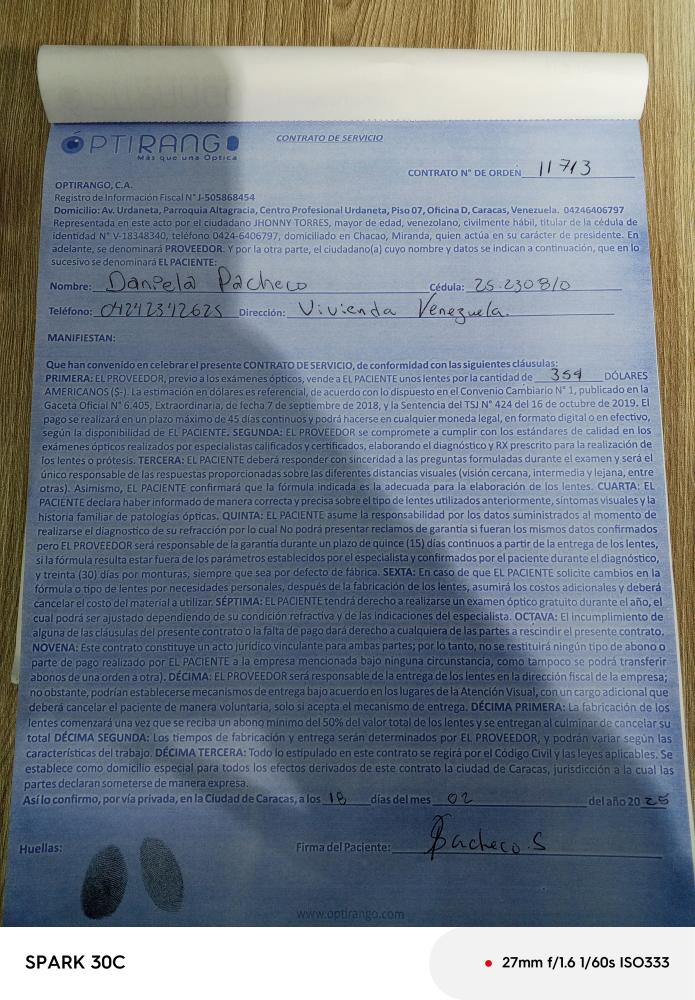 ÓPTIRANGO
Más que una Óptica
CONTRATO DE SERVICIO
CONTRATO N° DE ORDEN 11713
OPTIRANGO, C.A.
Registro de Información Fiscal N° J-505868454
Domicilio: Av. Urdaneta, Parroquia Altagracia, Centro Profesional Urdaneta, Piso 07, Oficina D, Caracas, Venezuela. 04246406797
Representada en este acto por el ciudadano JHONNY TORRES, mayor de edad, venezolano, civilmente hábil, titular de la cédula de
identidad N° V-18348340, teléfono 0424-6406797, domiciliado en Chacao, Miranda, quien actúa en su carácter de presidente. En
adelante, se denominará PROVEEDOR. Y por la otra parte, el ciudadano(a) cuyo nombre y datos se indican a continuación, que en lo
sucesivo se denominará EL PACIENTE:
Nombre: Daniela Pacheco Cédula: 25.230810
Teléfono: 04242342625 Dirección: Vivienda Venezuela.
MANIFIESTAN:
Que han convenido en celebrar el presente CONTRATO DE SERVICIO, de conformidad con las siguientes cláusulas:
PRIMERA: EL PROVEEDOR, previo a los exámenes ópticos, vende a EL PACIENTE unos lentes por la cantidad de 354 DÓLARES
AMERICANOS ($-). La estimación en dólares es referencial, de acuerdo con lo dispuesto en el Convenio Cambiario N° 1, publicado en la
Gaceta Oficial N° 6.405, Extraordinaria, de fecha 7 de septiembre de 2018, y la Sentencia del TSJ N° 424 del 16 de octubre de 2019. El
pago se realizará en un plazo máximo de 45 días continuos y podrá hacerse en cualquier moneda legal, en formato digital o en efectivo,
según la disponibilidad de EL PACIENTE. SEGUNDA: EL PROVEEDOR se compromete a cumplir con los estándares de calidad en los
exámenes ópticos realizados por especialistas calificados y certificados, elaborando el diagnóstico y RX prescrito para la realización de
los lentes o prótesis. TERCERA: EL PACIENTE deberá responder con sinceridad a las preguntas formuladas durante el examen y será el
único responsable de las respuestas proporcionadas sobre las diferentes distancias visuales (visión cercana, intermedia y lejana, entre
otras). Asimismo, EL PACIENTE confirmará que la fórmula indicada es la adecuada para la elaboración de los lentes. CUARTA: EL
PACIENTE declara haber informado de manera correcta y precisa sobre el tipo de lentes utilizados anteriormente, síntomas visuales y la
historia familiar de patologías ópticas. QUINTA: EL PACIENTE asume la responsabilidad por los datos suministrados al momento de
realizarse el diagnostico de su refracción por lo cual No podrá presentar reclamos de garantía si fueran los mismos datos confirmados
pero EL PROVEEDOR será responsable de la garantía durante un plazo de quince (15) días continuos a partir de la entrega de los lentes,
si la fórmula resulta estar fuera de los parámetros establecidos por el especialista y confirmados por el paciente durante el diagnóstico,
y treinta (30) días por monturas; siempre que sea por defecto de fábrica. SEXTA: En caso de que EL PACIENTE solicite cambios en la
fórmula o tipo de lentes por necesidades personales, después de la fabricación de los lentes, asumirá los costos adicionales y deberá
cancelar el costo del material a utilizar. SÉPTIMA: EL PACIENTE tendrá derecho a realizarse un examen óptico gratuito durante el año, el
cual podrá ser ajustado dependiendo de su condición refractiva y de las indicaciones del especialista. OCTAVA: El incumplimiento de
alguna de las cláusulas del presente contrato o la falta de pago dará derecho a cualquiera de las partes a rescindir el presente contrato.
NOVENA: Este contrato constituye un acto jurídico vinculante para ambas partes; por lo tanto, no se restituirá ningún tipo de abono o
parte de pago realizado por EL PACIENTE a la empresa mencionada bajo ninguna circunstancia, como tampoco se podrá transferir
abonos de una orden a otra). DÉCIMA: EL PROVEEDOR será responsable de la entrega de los lentes en la dirección fiscal de la empresa;
no obstante, podrían establecerse mecanismos de entrega bajo acuerdo en los lugares de la Atención Visual, con un cargo adicional que
deberá cancelar el paciente de manera voluntaria, solo si acepta el mecanismo de entrega. DÉCIMA PRIMERA: La fabricación de los
lentes comenzará una vez que se reciba un abono mínimo del 50% del valor total de los lentes y se entregan al culminar de cancelar su
total DÉCIMA SEGUNDA: Los tiempos de fabricación y entrega serán determinados por EL PROVEEDOR, y podrán variar según las
características del trabajo. DÉCIMA TERCERA: Todo lo estipulado en este contrato se regirá por el Código Civil y las leyes aplicables. Se
establece como domicilio especial para todos los efectos derivados de este contrato la ciudad de Caracas, jurisdicción a la cual las
partes declaran someterse de manera expresa.
Así lo confirmo, por vía privada, en la Ciudad de Caracas, a los 18 días del mes 02 del año 20 25
Huellas: Firma del Paciente: Pacheco S
www.optirango.com
SPARK 30C 27mm f/1.6 1/60s ISO333